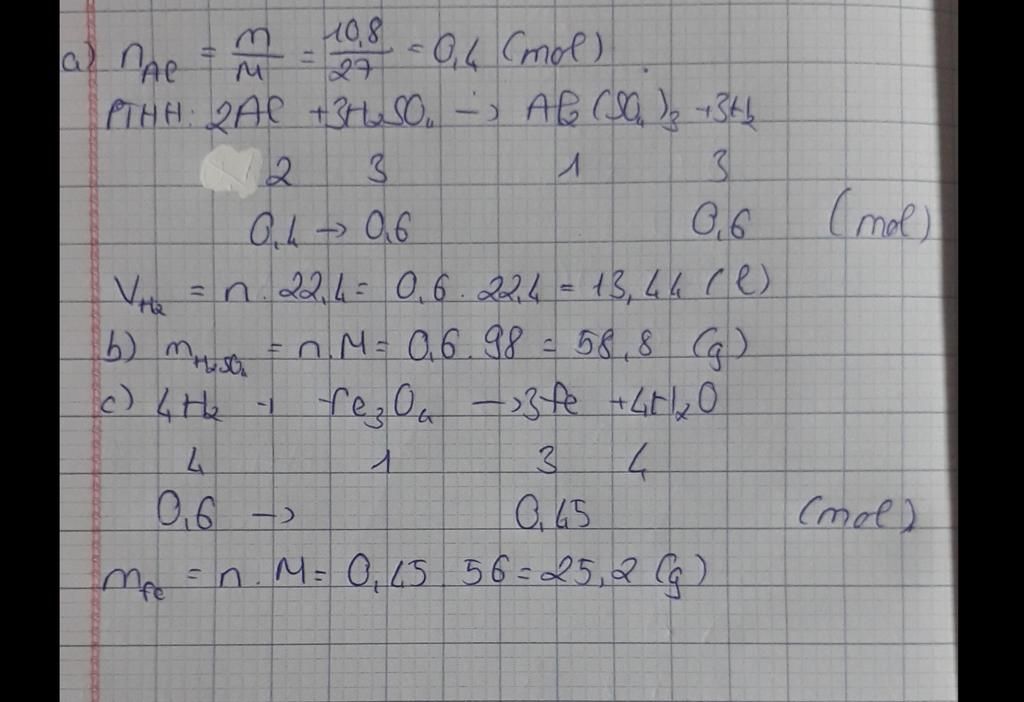 a) nAl = m/M = 10,8/27 = 0,4 (mol)
PTHH: 2Al + 3H₂SO₄ -> Al₂(SO₄)₃ + 3H₂
2 3 1 3
0,4 -> 0,6 0,6 (mol)
VH₂ = n . 22,4 = 0,6 . 22,4 = 13,44 (l)
b) mH₂SO₄ = n.M = 0,6 . 98 = 58,8 (g)
c) 4H₂ + Fe₃O₄ -> 3Fe + 4H₂O
4 1 3 4
0,6 -> 0,45 (mol)
mFe = n . M = 0,45 56 = 25,2 (g)